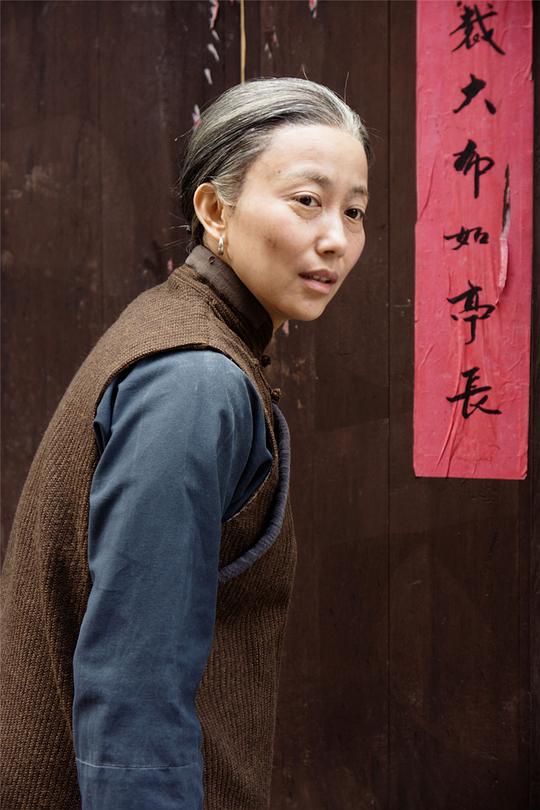 裁大布如亭長